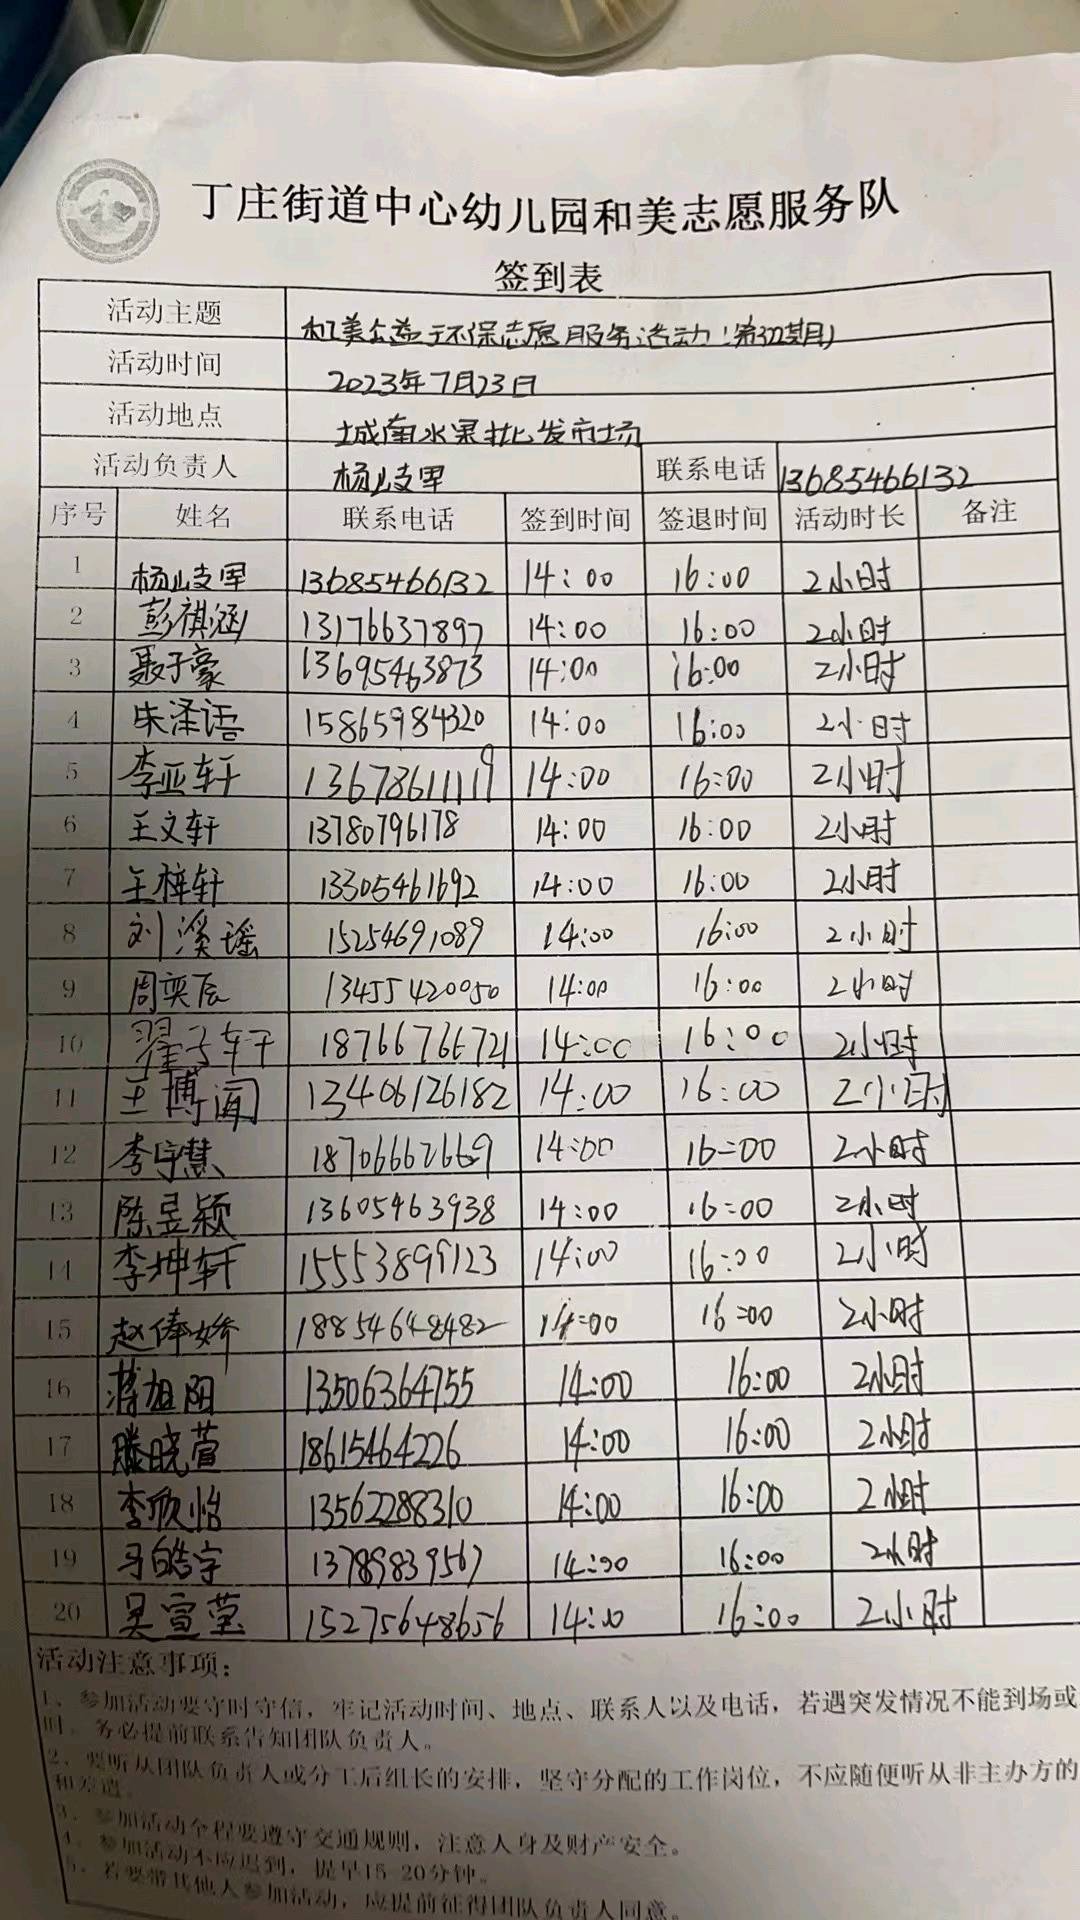 丁庄街道中心幼儿园和美志愿服务队
签到表
活动主题 和美公益环保志愿服务活动（第初期）
活动时间 2023年7月23日
活动地点 城南水果批发市场
活动负责人 杨岐军 联系电话 13685466132
序号 姓名 联系电话 签到时间 签退时间 活动时长 备注
1 13685466132 14:00 16:00 2小时
2 彭祺涵 13176637897 14:00 16:00 2小时
3 聂子豪 13695463873 14:00 16:00 2小时
4 朱泽语 15865984320 14:00 16:00 2小时
5 李亚轩 13678611119 14:00 16:00 2小时
6 王文轩 13780796178 14:00 16:00 2小时
7 王梓轩 13305461692 14:00 16:00 2小时
8 刘溪瑶 15254691089 14:00 16:00 2小时
9 周奕辰 13455420050 14:00 16:00 2小时
10 翟子轩 18766766721 14:00 16:00 2小时
11 王博闻 13406126182 14:00 16:00 2小时
12 李宇慧 18706662669 14:00 16:00 2小时
13 陈昱颖 13605463938 14:00 16:00 2小时
14 李坤轩 15553899123 14:00 16:00 2小时
15 赵俸娇 18854648482 14:00 16:00 2小时
16 蒋旭阳 13506364755 14:00 16:00 2小时
17 滕晓萱 18615464226 14:00 16:00 2小时
18 李欣怡 13562288310 14:00 16:00 2小时
19 马皓宇 13789839567 14:00 16:00 2小时
20 吴宣莹 15275648656 14:00 16:00 2小时
活动注意事项：
1、参加活动要守时守信，牢记活动时间、地点、联系人以及电话，若遇突发情况不能到场或
时，务必提前联系告知团队负责人。
2、要听从团队负责人或分工后组长的安排，坚守分配的工作岗位，不应随便听从非主办方的
3、参加活动全程要遵守交通规则，注意人身及财产安全。
4、参加活动不应迟到，提早15-20分钟。
5、若要带其他人参加活动，应提前征得团队负责人同意。